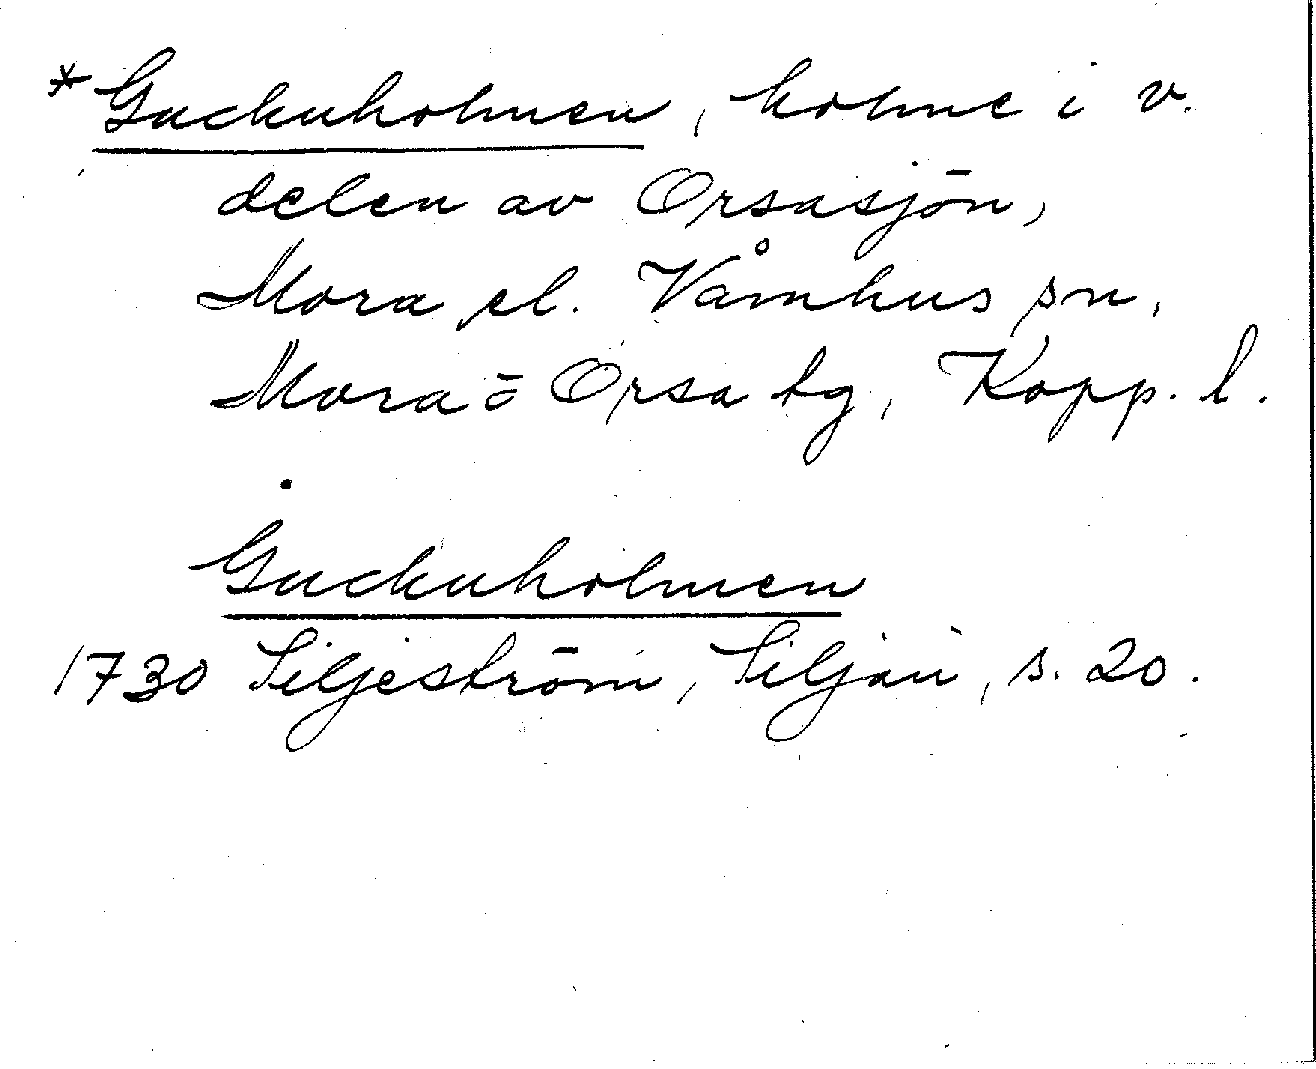 *Guckuholmen, holme i v.
delen av Orsasjön,
Mora el. Våmhus sn,
Mora o Orsa tg, Kopp. l.
Guckuholmen
1730 Siljeström, Siljan, s. 20.